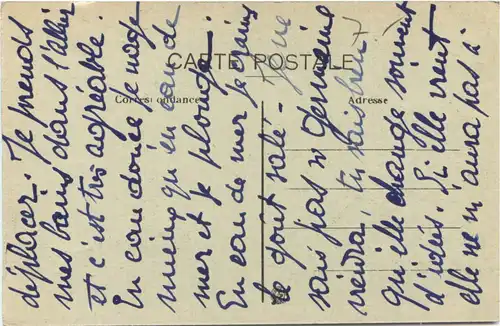 CARTE POSTALE
Correspondance
Adresse
déplacer. Je prends
mes bains dans l'Allier
et c'est très agréable.
En eau douce je nage
mieux qu'en eau de
mer et je plonge.
En eau de mer je crains
le goût salé. Je ne
sais pas si Germaine
viendra, tu sais bien
qu'elle change souvent
d'idées. Si elle vient
elle ne m'aura pas à